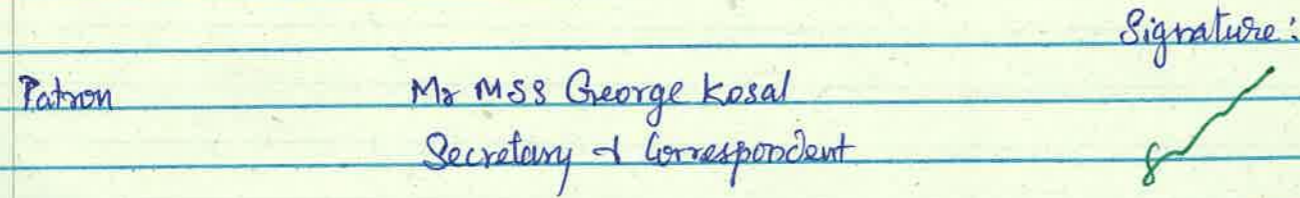 Signature:
Patron Mr MSS George Kosal
Secretary & Correspondent